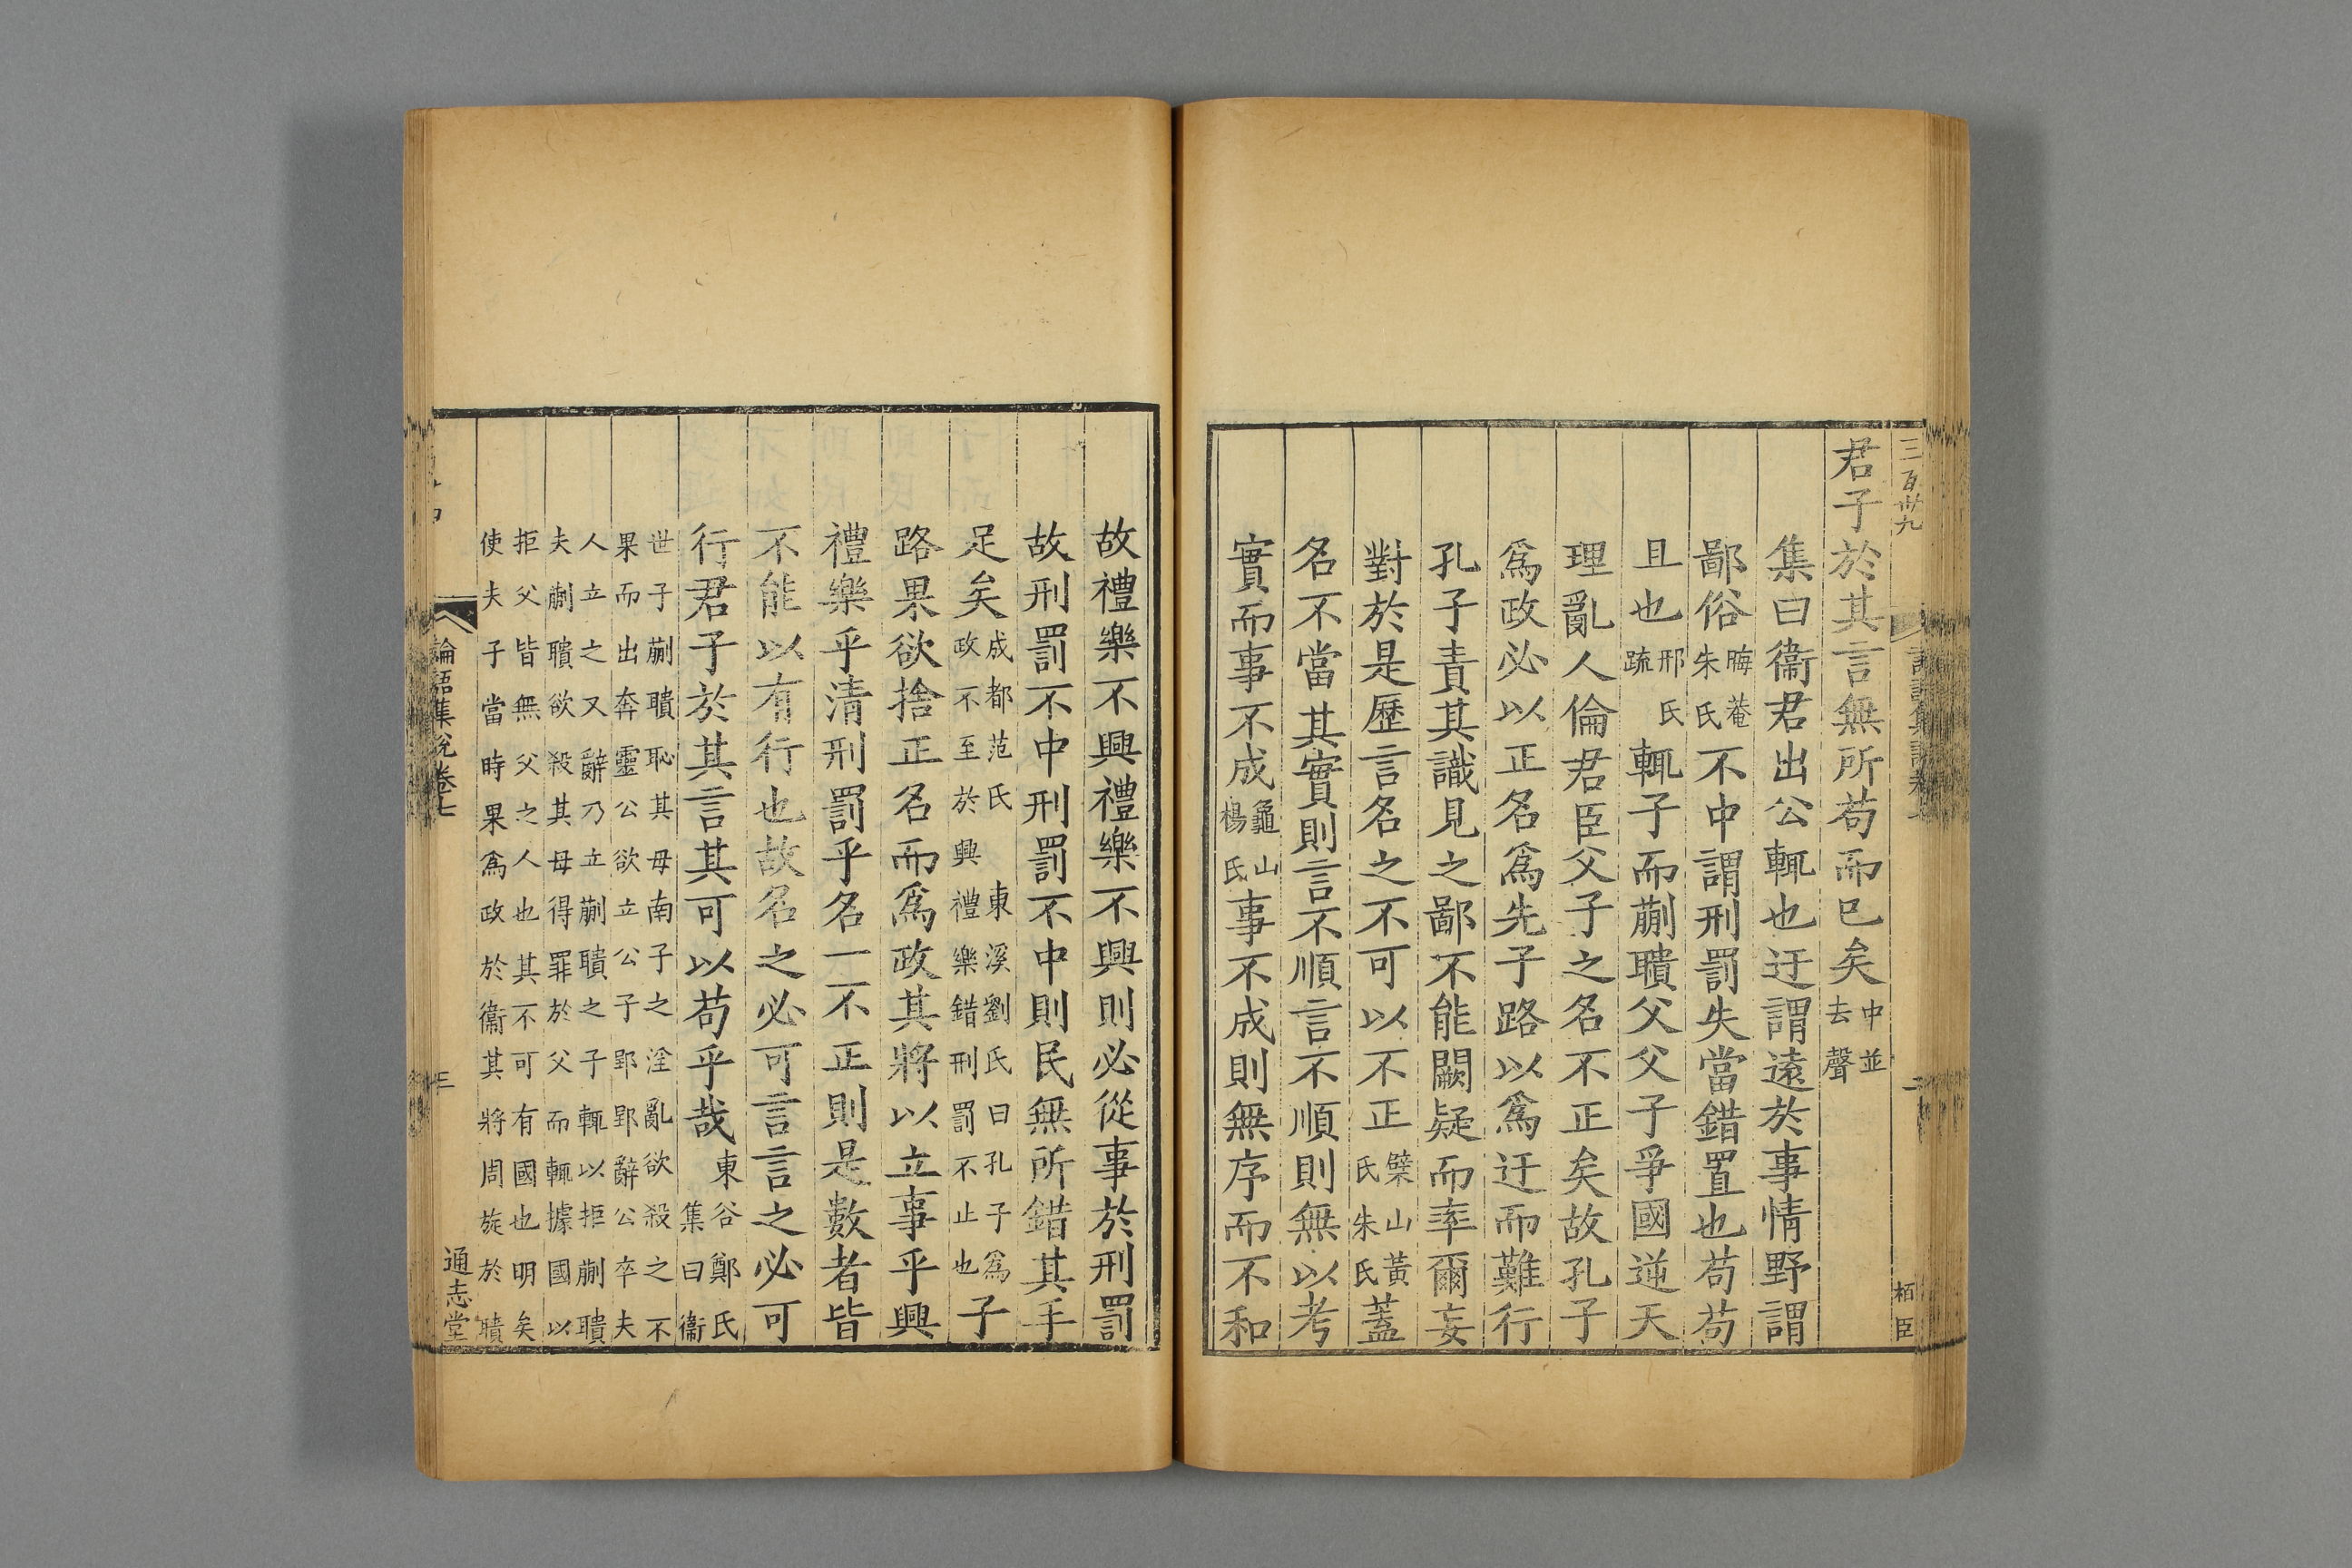 三百卅九
柏臣
君子於其言無所苟而已矣中並去聲
集曰衞君出公輒也迂謂遠於事情野謂
鄙俗晦菴朱氏不中謂刑罰失當錯置也苟苟
且也邢氏疏輒子而蒯聵父父子爭國逆天
理亂人倫君臣父子之名不正矣故孔子
爲政必以正名爲先子路以爲迂而難行
孔子責其識見之鄙不能闕疑而率爾妄
對於是歷言名之不可以不正檗山黃氏朱氏蓋
名不當其實則言不順言不順則無以考
實而事不成龜山楊氏事不成則無序而不和
故禮樂不興禮樂不興則必從事於刑罰
故刑罰不中刑罰不中則民無所錯其手
足矣成都范氏政不至於興東溪劉氏曰孔子爲禮樂錯刑罰不止也子
路果欲捨正名而爲政其將以立事乎興
禮樂乎清刑罰乎名一不正則是數者皆
不能以有行也故名之必可言言之必可
行君子於其言其可以苟乎哉東谷鄭氏集曰衞
世子蒯聵恥其母南子之淫亂欲殺之不
果而出奔靈公欲立公子郢郢辭公卒夫
人立之又辭乃立蒯聵之子輒以拒蒯聵
夫蒯聵欲殺其母得罪於父而輒據國以
拒父皆無父之人也其不可有國也明矣
使夫子當時果爲政於衞其將周旋於聵
論語集說卷七
三
通志堂